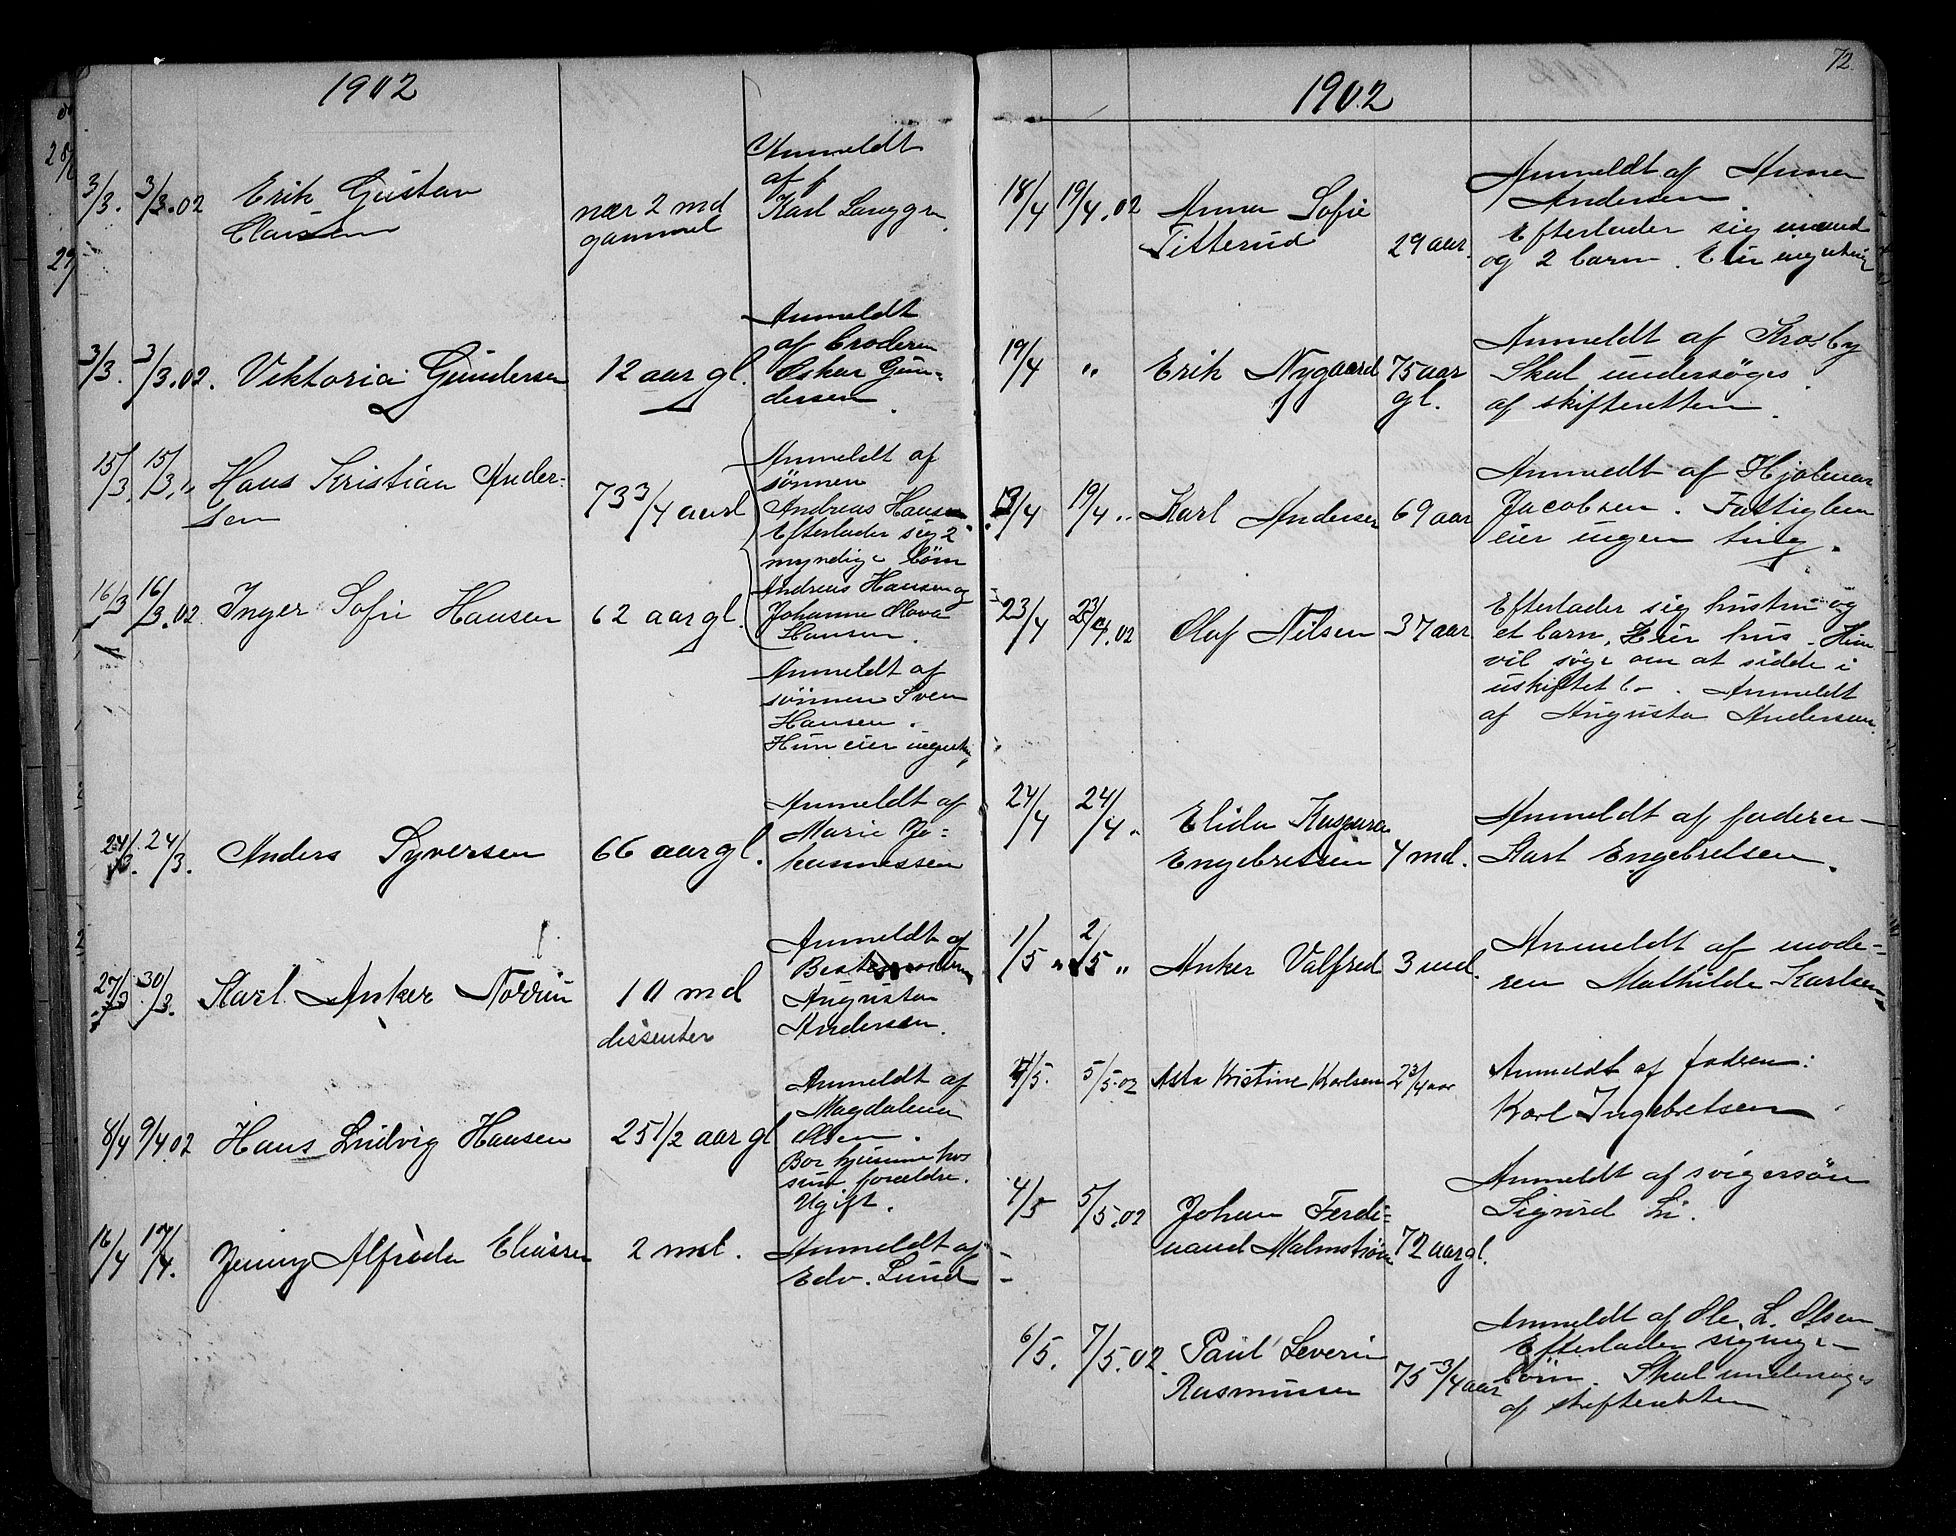 1902
3/3. 3/3.02 Erik Gustav
Clausen
nær 2 md
gammel
Anmeldt
af
Karl
3/3. 3/3.02. Viktoria Gundersen 12 aar gl.
Anmeldt
af broderen
Oskar Gun-
dersen.
15/3. 15/3. " Hans Kristian Ander-
sen
73 3/4 aar
Anmeldt af
sønnen
Andreas Hansen
Efterlader sig 2
myndige børn
Andreas Hansen og
Johanne
Hansen.
16/3 16/3.02 Inger Sofie Hansen 62 aar gl.
Anmeldt af
sønnen Sven
Hansen.
Hun eier ingenting
24/3. 24/3. Anders Syversen 66 aar gl.
Anmeldt af
Marie Jo-
hannessen
27/3 30/3. Karl Anker 10 md
dissenter
Anmeldt af
Bestemoderen
Augusta
Andersen.
8/4 9/4 02 Hans Ludvig Hansen 25 1/2 aar gl
Anmeldt af
Magdalena
Olsen.
Bor hjemme hos
sine forældre.
Ugift.
16/4 17/4. Jenny Alfrida Eliassen 2 md.
Anmeldt af
Edv. Lund
72.
1902
18/4 19/4.02 Anna Sofie
Titterud
29 aar.
Anmeldt af Anna
Andersen.
Efterlader sig mand
og 2 barn. Eier ingenting
19/4 " Erik Nygaard 75 aar
gl.
Anmeldt af Krosby
Skal undersøges
af skifteretten.
19/4 19/4 " Karl Andersen 69 aar
Anmeldt af Hjalmar
Jacobsen. Fattiglem
eier ingen ting.
23/4 23/4.02 Olaf Nilsen 37 aar
Efterlader sig hustru og
et barn. Eier hus. Hun
vil søge om at sidde i
uskiftet bo. Anmeldt
af Augusta Andersen.
24/4 24/4 " Elida Kaspara
Engebretsen 4 md.
Anmeldt af faderen
Karl Engebretsen.
1/5 " 2/5 " Anker Valfred 3 md.
Anmeldt af mode-
ren Mathilde Karlsen
4/5. 5/5.02 Asta Kristine Karlsen 2 3/4 aar
Anmeldt af fadren:
Karl Ingebretsen
4/5 5/5.02 Johan Ferdi-
nand Malmstrøm 72 aar gl.
Anmeldt af svigersøn
Sigurd Li.
6/5. 7/5.02. Paul Severin
Rasmussen
75 3/4 aar
Anmeldt af Ole L. Olsen
Efterlader sig myndige
børn. Skal undersøges
af skifteretten